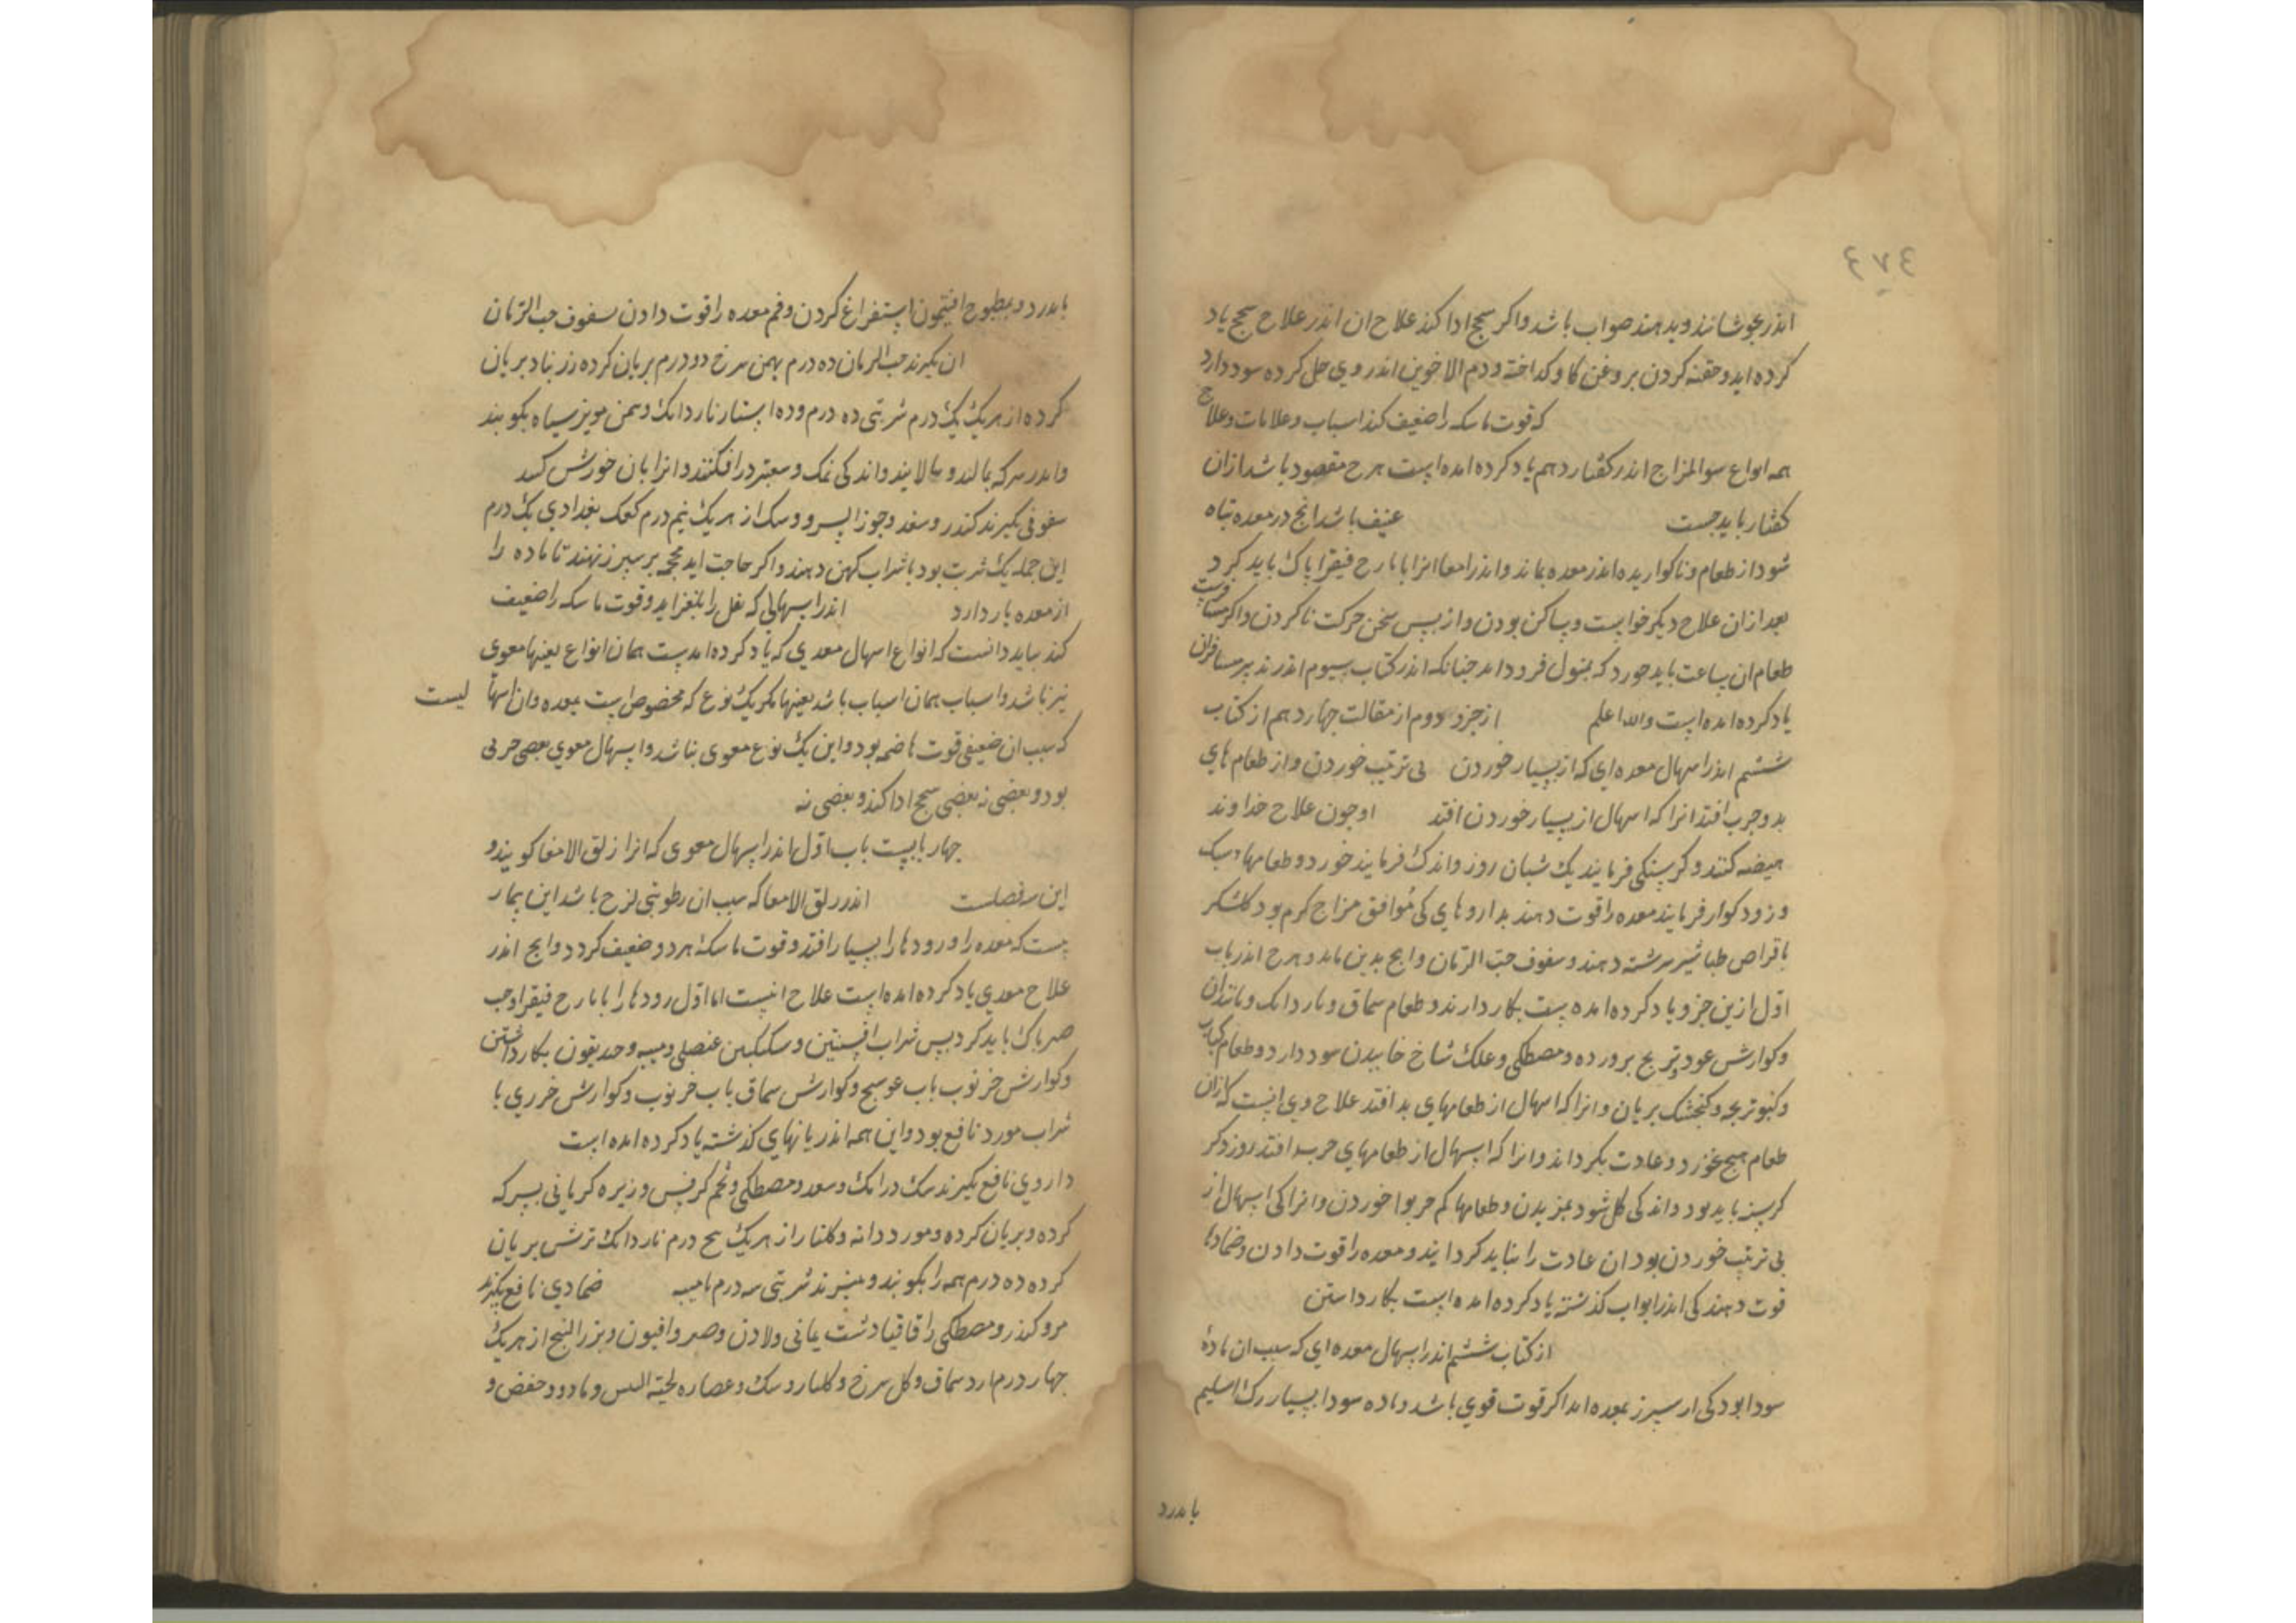 ٤٧٤
اندر بجوشانند و بدهند صواب باشد و اکر سحج ادا کند علاج ان اندر علاج سحج یاد
کرده اید و حقنه کردن بروغن کاو کداخته و دم الاخوین اندر وی حل کرده سود دارد
که قوت ماسکه را ضعیف کند اسباب و علامات و علاج
همه انواع سوالمزاج اندر کفتار دهم یاد کرده امده است هرح مقصود باشد ازان
کفتار باید جست عنیف باشد انج در معده تباه
شود از طعام و ناکواریده اندر معده بماند و اندر امعا انرا بایارح فیقرا پاک باید کرد
بعد ازان علاج دیکر خوابست و ساکن بودن و از پس سخن حرکت ناکردن و اکر مسافرست
طعام ان ساعت باید خورد که بمنزل فرود اید جنانکه اندر کتاب سیوم اندر تدبیر مسافران
یاد کرده امده است والله اعلم از جزو دوم از مقالت جهاردهم از کتاب
ششم اندر اسهال معده ای که از بسیار خوردن بی ترتیب خوردن و از طعام های
بد و جرب افتد انرا که اسهال از بسیار خوردن افتد او جون علاج خداوند
هیضه کنند و کرسنکی فرمایند یک شبان روز و اندک فرمایند خورد و طعامهاء سبک
و زود کوار فرمایند معده را قوت دهند بداروهای کی موافق مزاج کرم بود کلشکر
باقراص طباشیر سرشته دهند و سفوف حب الرمان و انج بدین ماند و هرح اندر باب
اول ازین جزو یاد کرده امده است بکار دارند و طعام سماق و ناردانک و مانند ان
و کوارش عود و ترنج پرورده و مصطکی و علک شاخ خاییدن سود دارد و طعام کباب
و کبوتر بجه و کنجشک بریان و انرا که اسهال از طعامهای بد افتد علاج وی انست که ازان
طعام هیج نخورد و عادت بکرداند و انرا که اسهال از طعامهای جرب افتد روز دکر
کرسنه باید بود و اندکی کلشود مزیدن و طعامها کم جربو خوردن و انرا کی اسهال از
بی ترتیب خوردن بود ان عادت را بباید کردانید و معده را قوت دادن و ضمادها
قوت دهند کی اندر ابواب کذشته یاد کرده امده است بکار داشتن
از کتاب ششم اندر اسهال معده ای که سبب ان مادهٔ
سودا بود کی از سپرز بمعده اید اکر قوت قوی باشد و ماده سودا بسیار رک اسلیم
باید زد
باید زد و بمطبوح افتیمون استفراغ کردن و فم معده را قوت دادن سفوف حب الرمان
ان بکیرند حب الرمان ده درم بهمن سرخ دو درم بریان کرده زرنباد بریان
کرده از هریک یک درم شربتی ده درم و ده استار ناردانک و من مویز سیاه بکوبند
و اندر سرکه بمالند و بپالایند و اندکی نمک و سعتر درافکنند و انرا بان خورش کنند
سفوفی بکیرند کندر و سعد و جوز السرو و سک از هریک نیم درم کعک بغدادی یک درم
این جمله یک شربت بود با شراب کهن دهند و اکر حاجت اید محجمه بر سپرز نهند تا ماده را
از معده باز دارد اندر اسهالی که ثفل را بلغزاند و قوت ماسکه را ضعیف
کند بباید دانست که انواع اسهال معدی که یاد کرده امدست همان انواع بعینها معوی
نیز باشد و اسباب همان اسباب باشد بعینها مکر یک نوع که مخصوص است بمعده وان اسها لیست
که سبب ان ضعیفی قوت هاضمه بود و این یک نوع معوی نباشد و اسهال معوی بعضی خونی
بود و بعضی نه بعضی سحج ادا کند و بعضی نه
جهار بابست باب اول اندر اسهال معوی که انرا زلق الامعا کویند و
این سه فصلست اندر زلق الامعا که سبب ان رطوبتی لزج باشد این بیمار
یست که معده را و رودها را بسیار افتد و قوت ماسکه هر دو ضعیف کردد و انج اندر
علاج معدی یاد کرده امده است علاج انست اما اول رودها را بایارح فیقرا و حب
صبر باک باید کرد پس شراب افسنتین و سکنکبین عنصلی و میبه و خندیقون بکار داشتن
و کوارش خرنوب باب عوسج و کوارش سماق باب خرنوب و کوارش خرری با
شراب مورد نافع بود و این همه اندر بابهای کذشته یاد کرده امده است
داروی نافع بکیرند سک و رامک و سعد و مصطکی و تخم کرفس و زیره کرمانی بسرکه
کرده و بریان کرده و مورد دانه و کلنار از هریک پنج درم ناردانک ترش بریان
کرده ده درم همه را بکوبند و ببیزند شربتی سه درم با میبه ضمادی نافع بکیرند
مر و کندر و مصطکی و اقاقیا و شب یمانی و لادن و صبر و افیون و بزر البنج از هریک
جهار درم ارد سماق و کل سرخ و کلنار و سک و عصاره لحیة التیس و مازو و حضض و